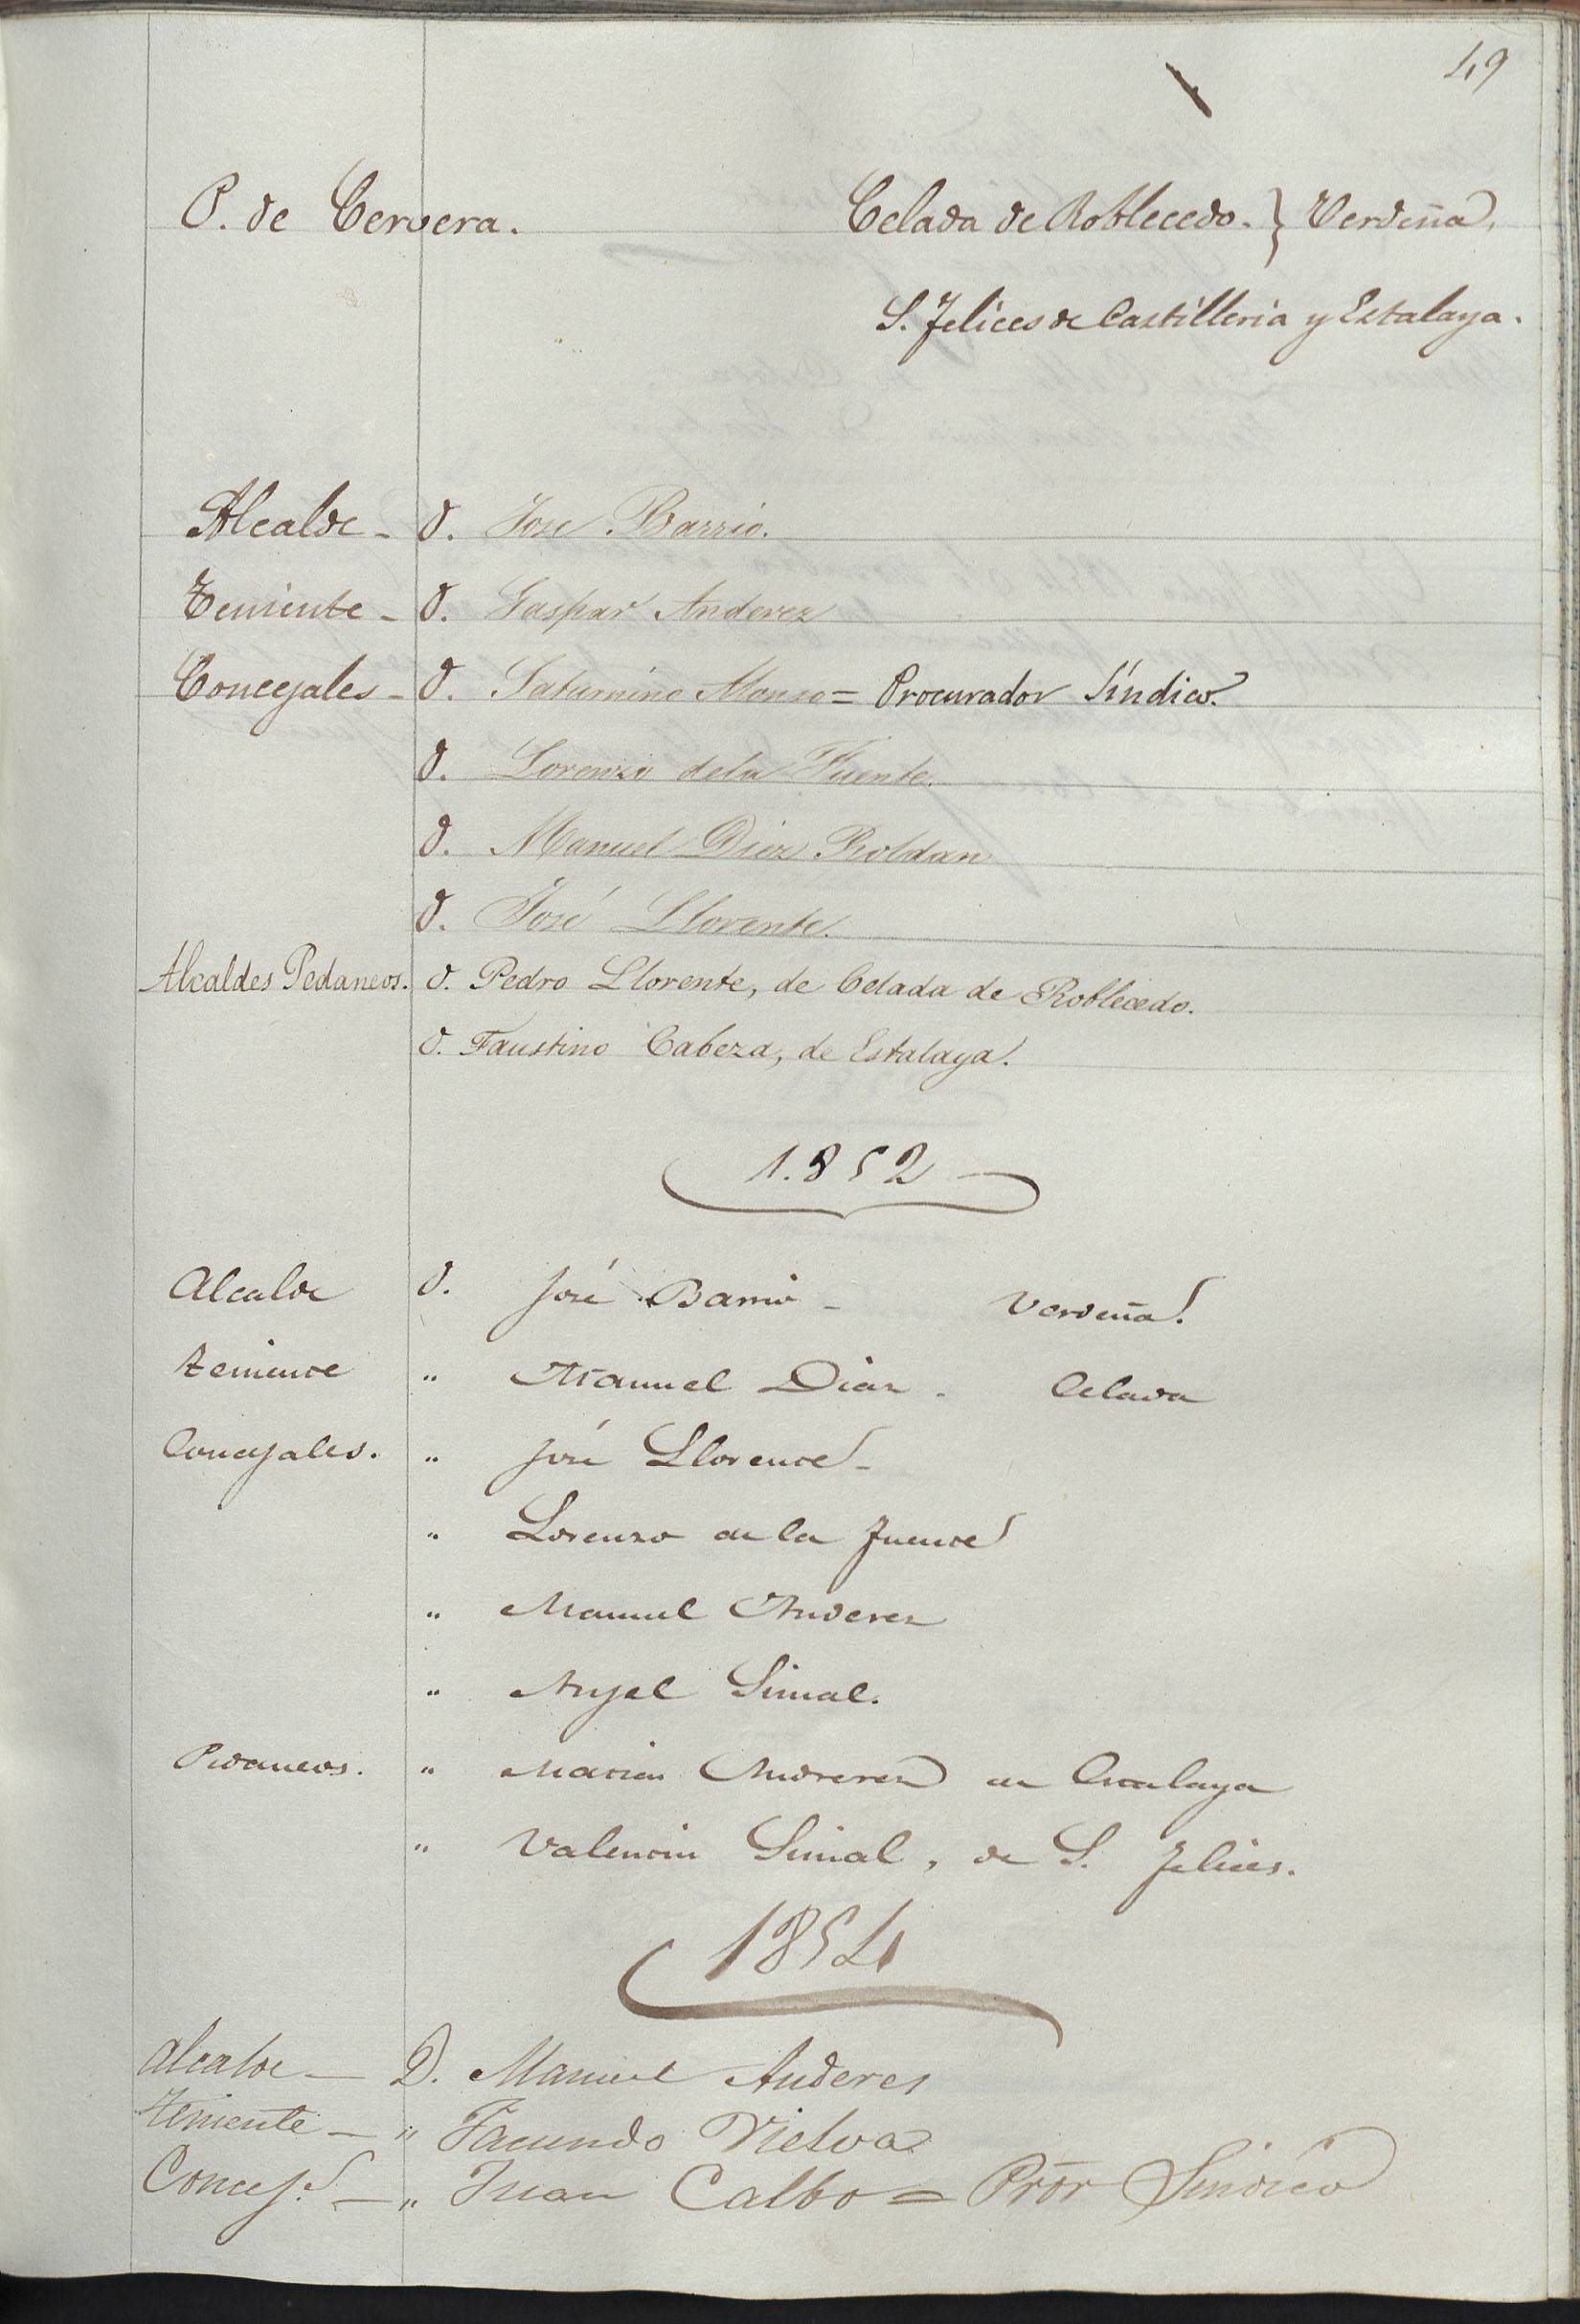 49
P. de Cervera. Celada de Roblecedo. } Verdeña,
S. Felices de Castilleria y Estalaya.
Alcalde - D. Jose Barrio.
Teniente - D. Gaspar Anderez
Concejales - D. Saturnino Alonso = Procurador Síndico.
D. Lorenzo dela Fuente.
D. Manuel Diez Roldan
D. José Llorente.
Alcaldes Pedaneos. D. Pedro Llorente, de Celada de Roblecedo.
D. Faustino Cabeza, de Estalaya.
1.852
Alcalde D. José Barrio - Verdeña.
Teniente " Manuel Diaz - Celada
Concejales. " José Llorente -
" Lorenzo de la Fuente
" Manuel Anderez
" Anjel Simal.
Pedaneos. " Matias Anderez de Estalaya
" Valentin Simal, de S. Felices.
1854
Alcalde - D. Manuel Anderes
Teniente - " Facundo Vielva
Concej.s - " Juan Calbo = Pror Sindico